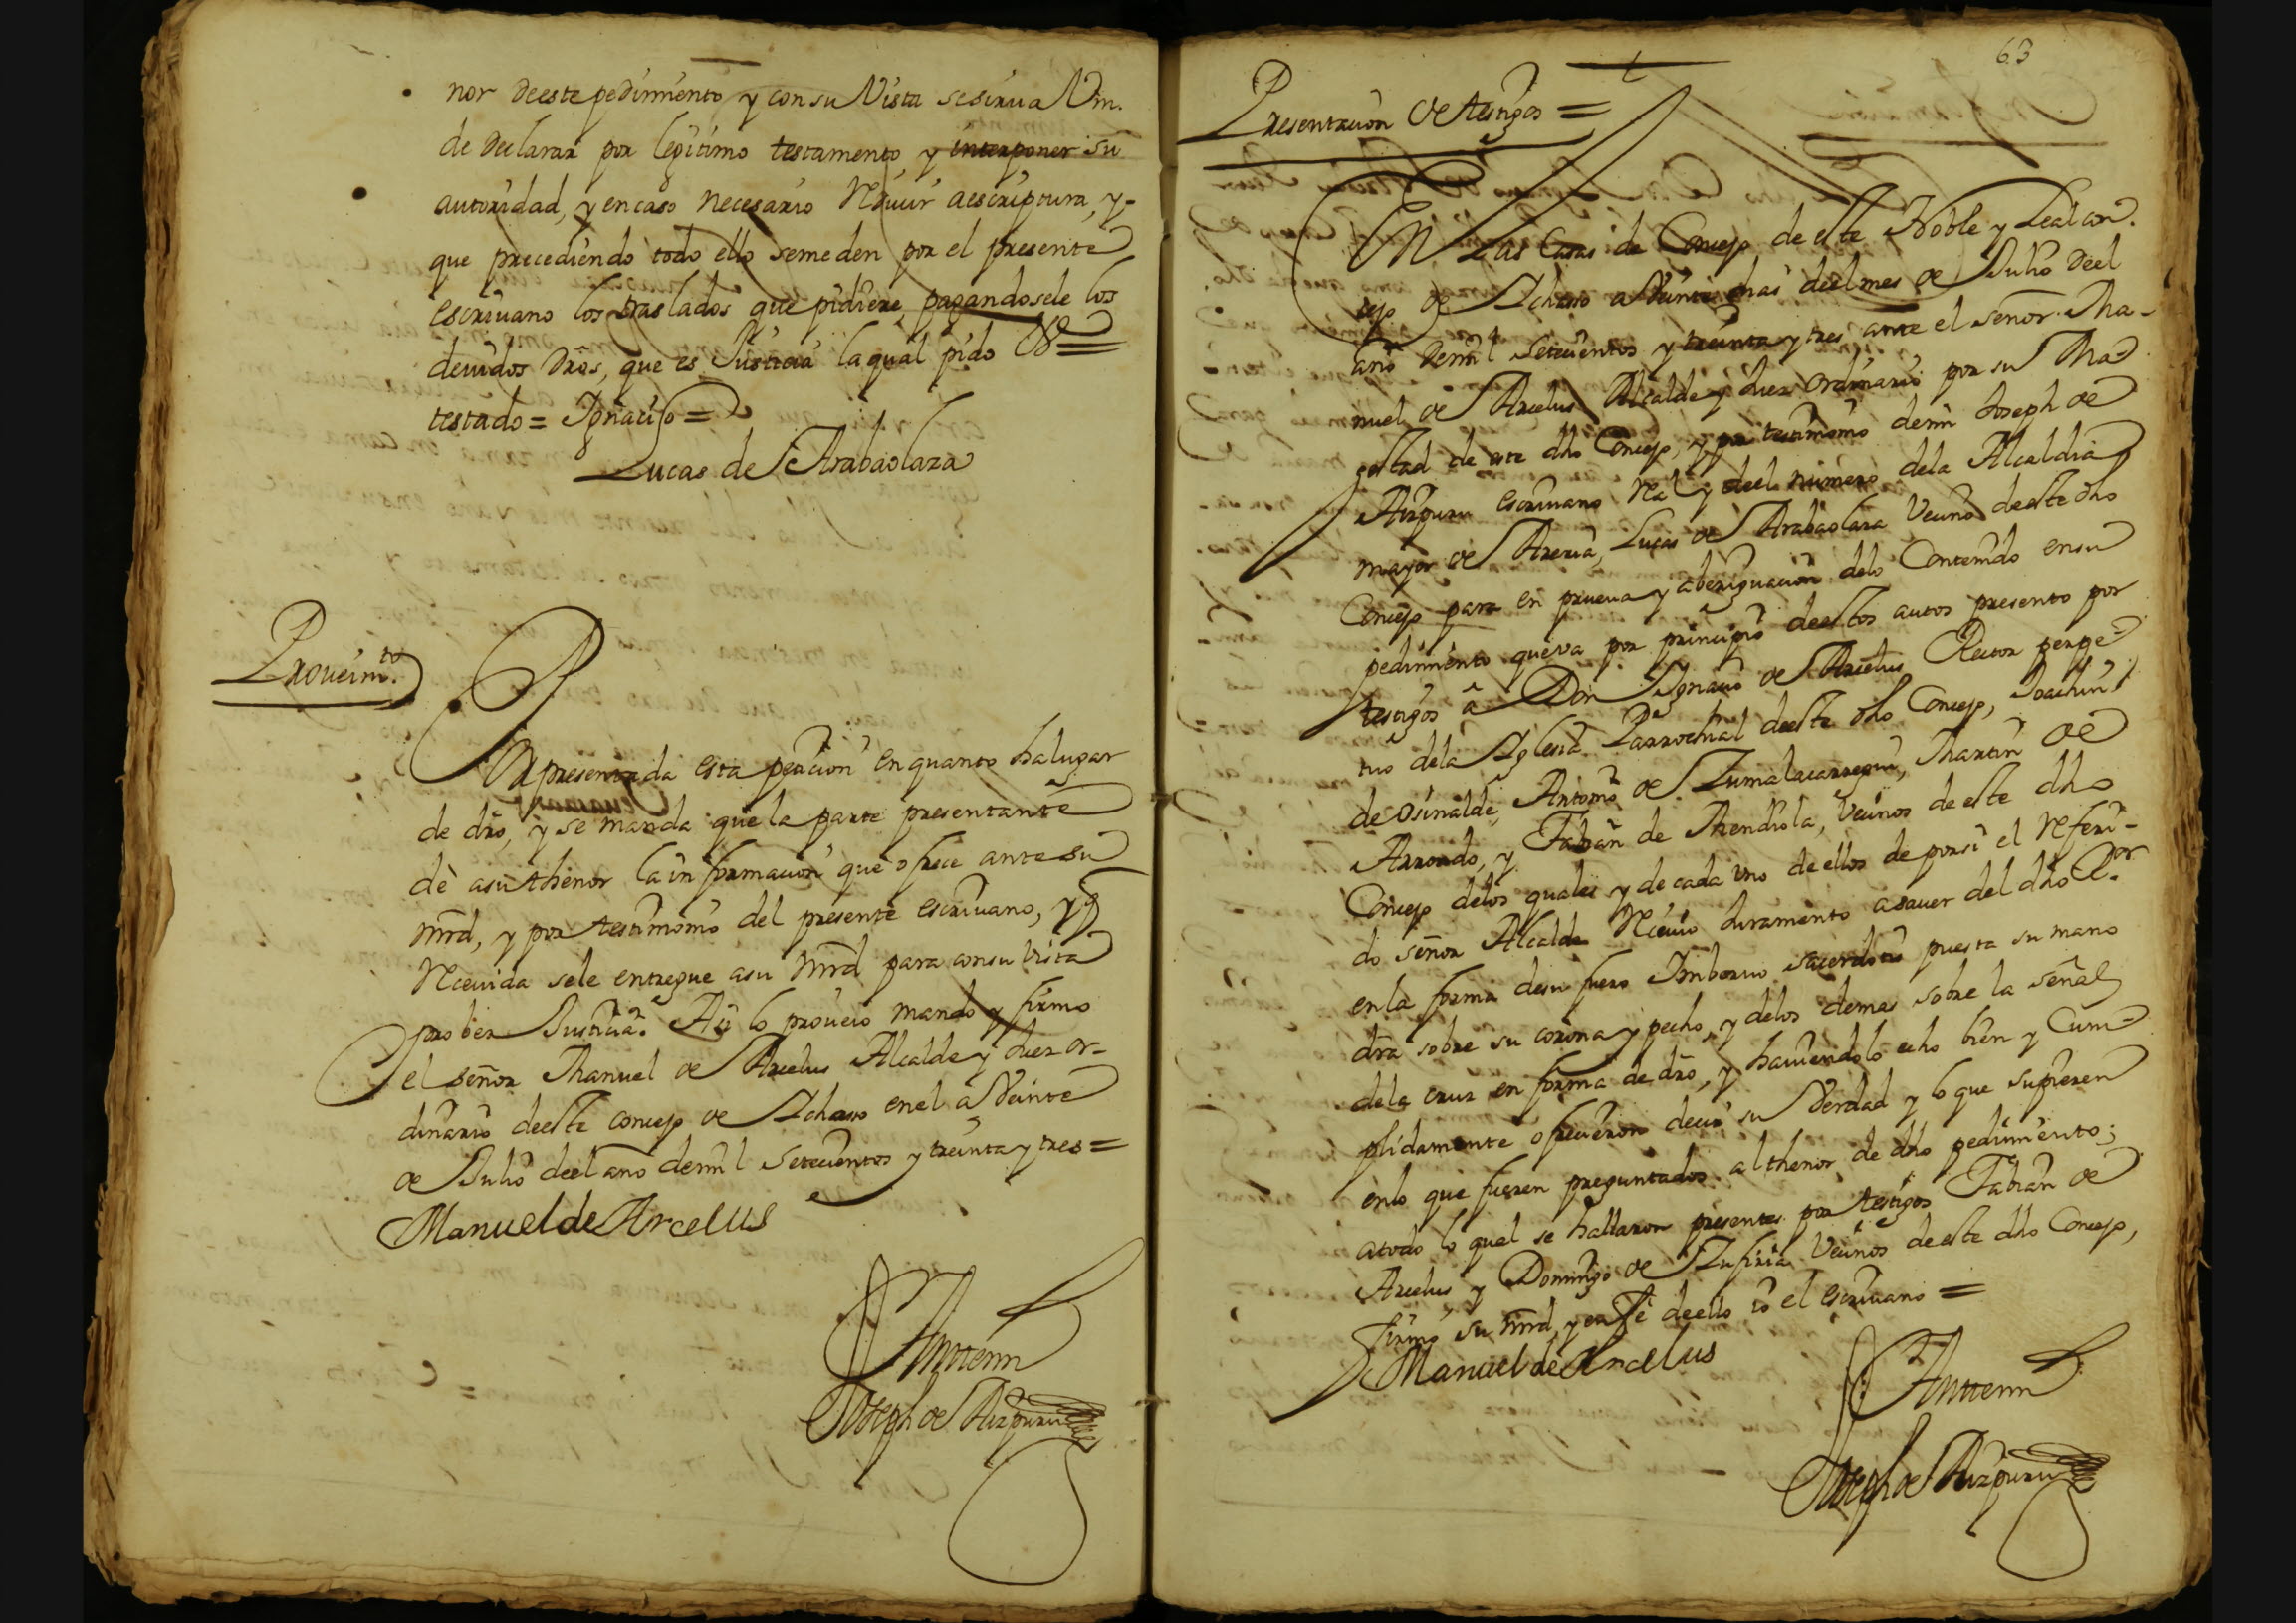 nor deeste pedimiento y con su Vista se sirua Vm.
de declarar por legitimo testamento, y interponer su
autoridad, y en caso necesario Rducir aescriptura, y-
que precediendo todo ello semeden por el presente
escriuano los traslados que pidiere, pagandosele los
deuidos dros, que es Justicia la qual pido &=
testado= Ignacio=
Lucas de Arabaolaza
Proveimto.
Por presentada esta peticion en quanto ha lugar
de dro, y se manda que la parte presentante
dè asu thenor la informacion que ofrece ante su
mrd, y por testimonio del presente escriuano, y
Rceuida sele entregue asu mrd para consu Vista
prober Justicia. Asi lo proueio mando y firmo
el señor Manuel de Arcelus Alcalde y Juez or-
dinario deeste concejo de Ichaso enel a Veinte
de Julio deel año demil Setecientos y treinta y tres=
Manuel de Arcelus
Anttemi
Joseph de Aizpuru
63
Presentacion de testigos =
En Las Casas de Concejo de este Noble y Leal con-
cejo de Ichaso a Veinte dias deel mes de Julio deel
año demil Setecientos y treinta y tres ante el señor Ma-
nuel de Arcelus Alcalde y Juez ordinario por su Ma-
gestad de este dho Concejo, y por testimonio demi Joseph de
Aizpuru escriuano Real y deel numero dela Alcaldia
mayor de Areria, Lucas de Arabaolaza Vecino deeste dho
Concejo para en prueua y aberiguacion delo Contenido ensu
pedimiento queva por principio deestos autos presento por
testigos â Don Ignacio de Arcelus Rector perpe-
tuo dela Iglesia Parrochial deeste dho Concejo, Joachin
de Osinalde, Antonio de Zumalacarregui, Martin de
Arrondo, y Fabian de Mendiola, Vecinos de este dho
Concejo delos quales y de cada Vno deellos deporsi el Rferi-
do señor Alcalde Rceuio Juramento asauer del dho Ror.
enla forma desu fuero Inberuo sacerdotis puesta su mano
dra sobre su corona y pecho, y delos demas sobre la señal
dela cruz en forma de dro, y hauiendolo echo bien y Cum-
plidamente ofrecieron decir su Verdad y lo que supieren
enlo que fueren preguntados al thenor de dho pedimiento;
atodo lo qual se hallaron presentes por testigos Fabian de
Arcelus y Domingo de Zufiria Vecinos de este dho Concejo,
firmó su mrd, y en fe deello io el escriuano =
Manuel de Arcelus
Anttemi
Joseph de Aizpuru